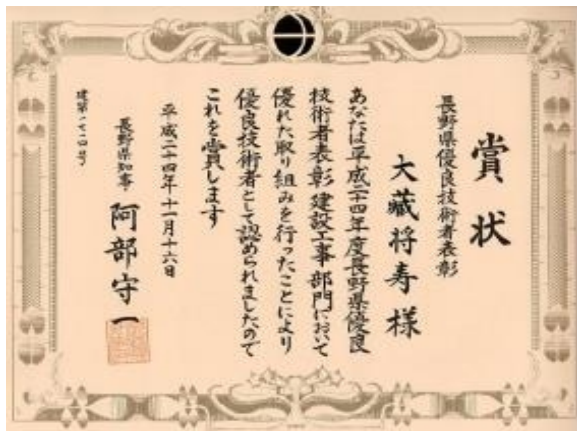 賞状
長野県優良技術者表彰
大藏将寿様
あなたは平成二十四年度長野県優良
技術者表彰建設工事部門において
優れた取り組みを行ったことにより
優良技術者として認められましたので
これを賞します
平成二十四年十一月十六日
長野県知事 阿部守一